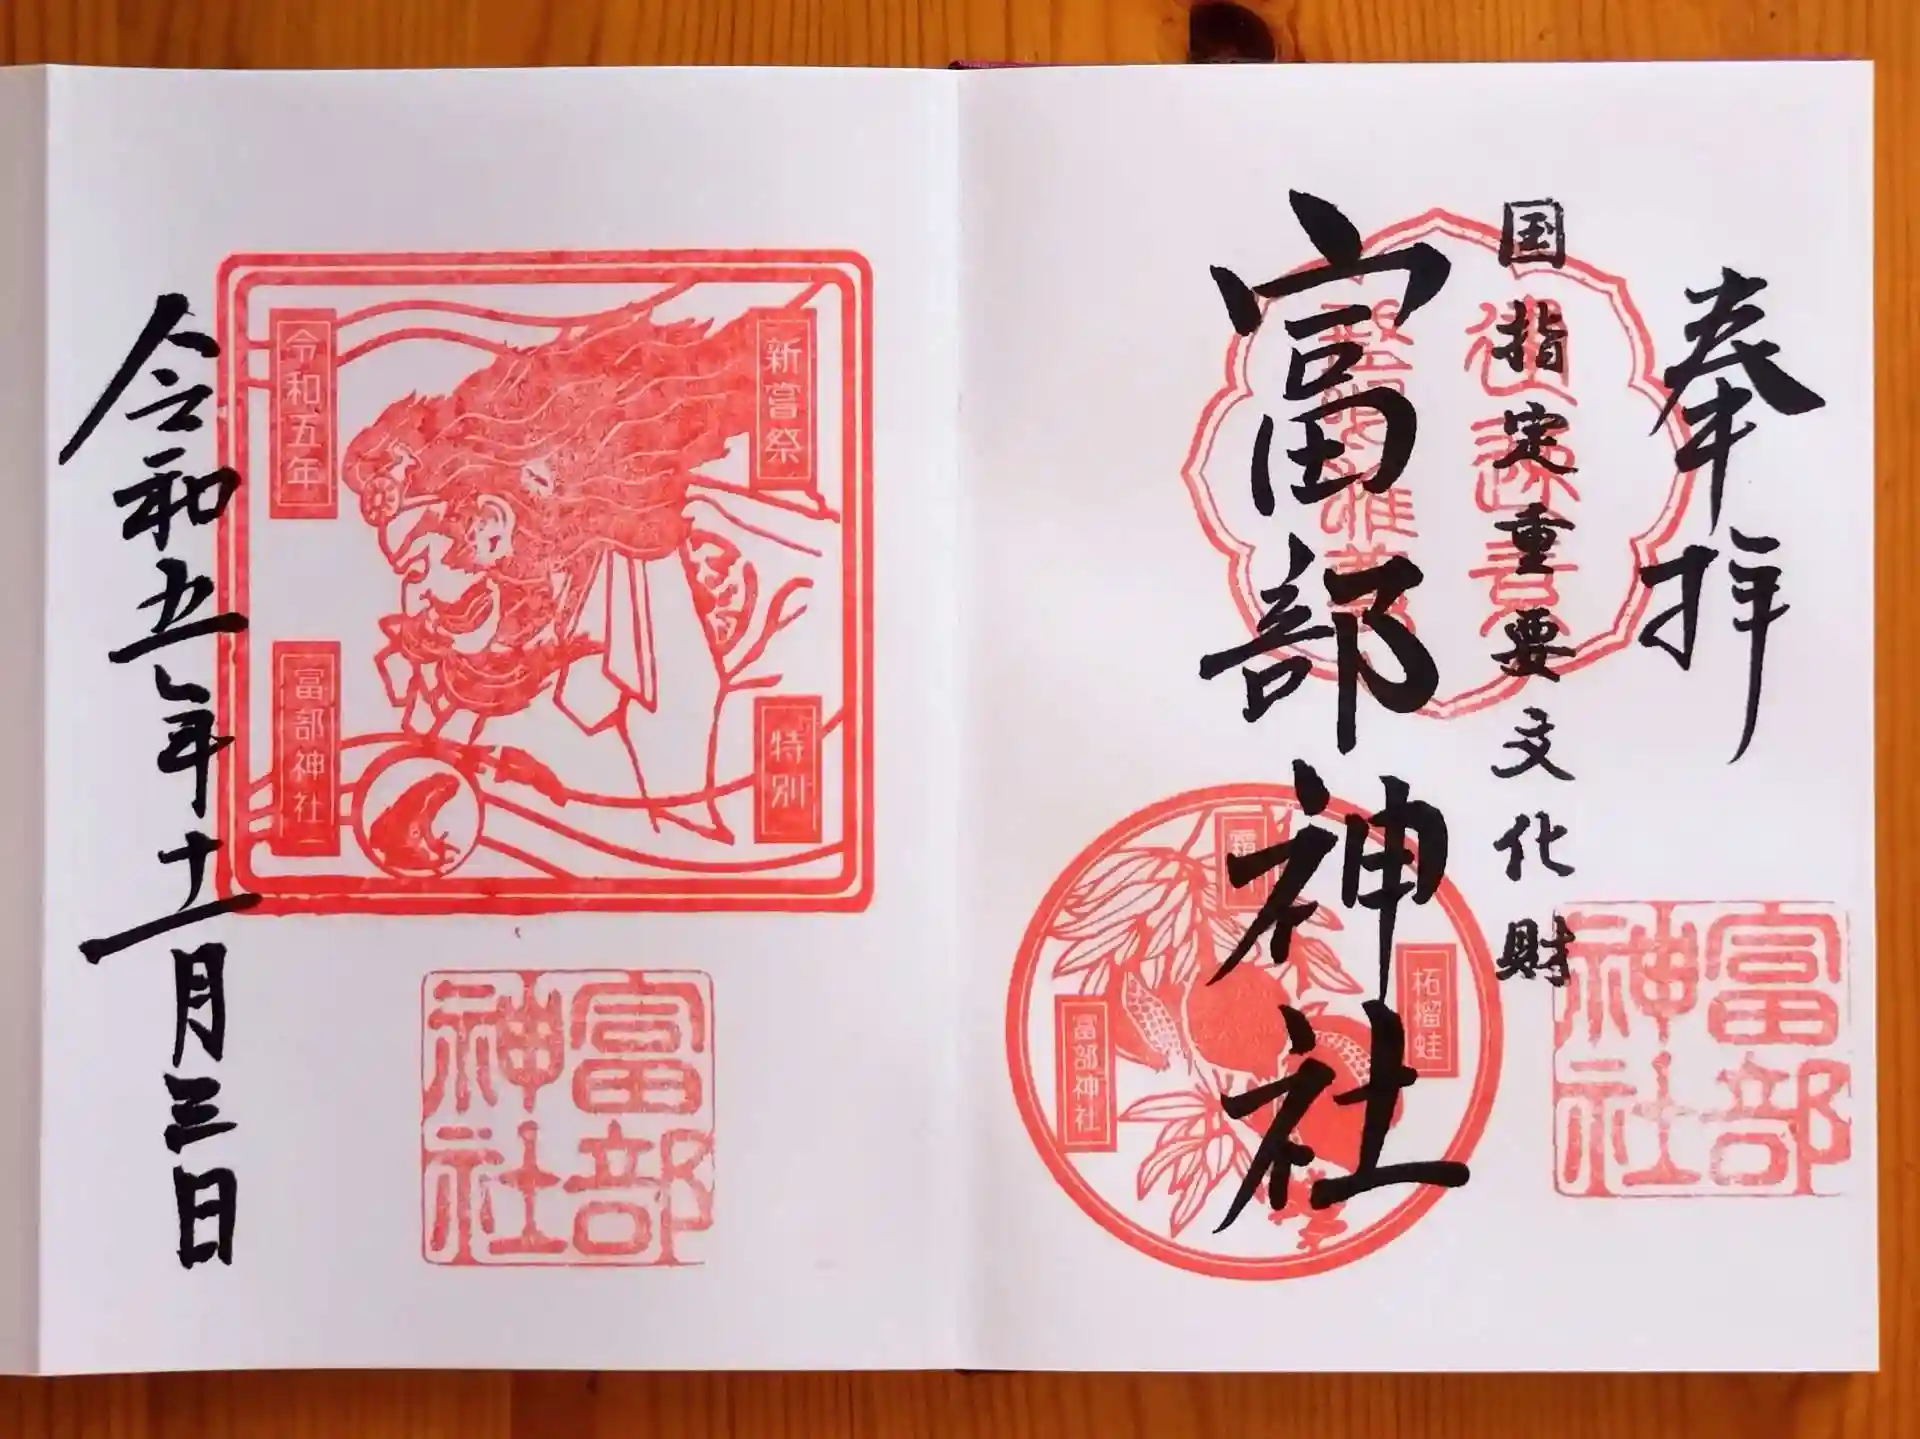 奉拝
国指定重要文化財
富部神社
富部神社
柘榴蛙
霜
富部神社
新嘗祭
特別
令和五年
富部神社
富部神社
令和五年十一月三日